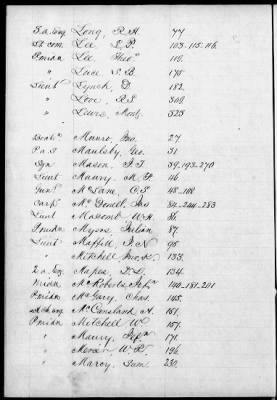 3.a. Eng Long, R. H. 77
Lt com. Lee S. P. 103.115.116.
P. mid'n Lee, Theo. 119.
" Luce S. B. 178
Lieut Lynch D. 182.
" Love, R. L. 309.
" Lewis, Montg. 325
Munro, Jno. 27
P.a.S Maulsby, Geo. 31
Mason, J. T. 39.193.270
Lieut Maury, M. F. 46
Gun. McLane, C. S. 48.108
Carp. McDonell, Jas 84.244.283
Lieut Macomb W. H. 86
P. mid'n Myers Julian 87.
Lieut Maffitt, J. N 95
" Mitchell Jno. 133.
2.a. Eng. Mapes, D. 134.
Mid'n McRoberts, Jef'n 140.181.201
P. mid'n McGary, Chas. 145.
McCausland A. 151.
P. mid'n Mitchell W. 157.
" Maury, Jef'n 171.
" W. P. 196
" Marcy, Sam. 230.